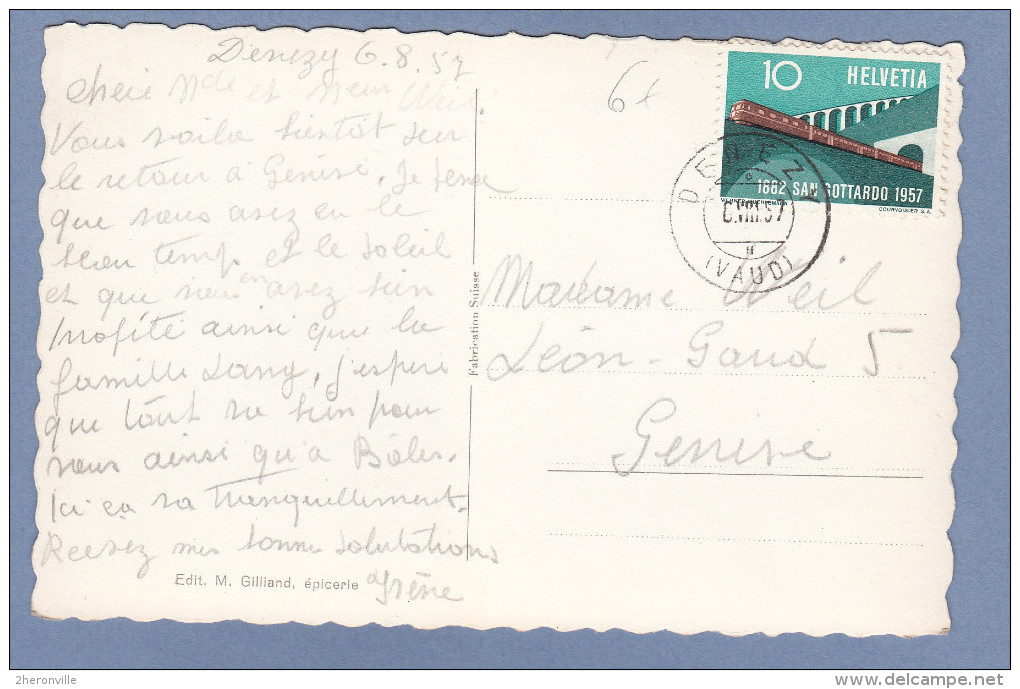 Denezy 6.8.57
Chère Mde et Mr Weil.
Vous voila bientôt sur
le retour à Genève, Je pense
que vous avez eu le
beau temps et le soleil
et que vous en avez bien
profité ainsi que la
famille Lang, j'espère
que tout va bien pour
vous ainsi qu'a Bâles.
Ici ça va tranquillement.
Recevez mes bonnes salutations
Irène
Edit. M. Gilliand, épicerie
Fabrication Suisse
10 HELVETIA
1882 SAN GOTTARDO 1957
COURVOISIER S.A.
DENEZY
6.VIII.57
(VAUD)
Madame Weil
Léon-Gaud 5
Genève
2heronville
delcampe.net